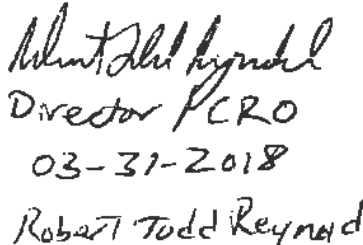 Robert Todd Reynard
Director / CRO
03-31-2018
Robert Todd Reynard